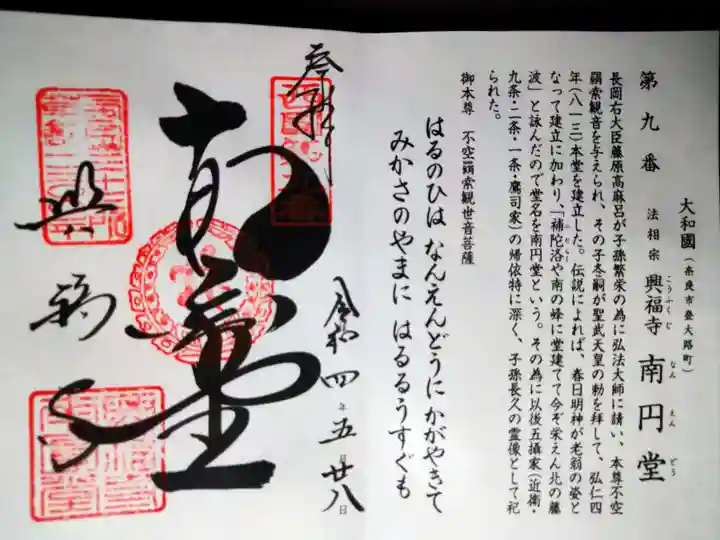 大和國（奈良市登大路町）
第九番 法相宗 興福寺 南円堂
こうふくじ なんえんどう
長岡右大臣藤原高麻呂が子孫繁栄の為に弘法大師に請い、本尊不空
羂索観音を与えられ、その子冬嗣が聖武天皇の勅を拝して、弘仁四
年（八一三）本堂を建立した。伝説によれば、春日明神が老翁の姿と
なって建立に加わり、「補陀洛や南の峰に堂建てて今ぞ栄えん北の藤
波」と詠んだので堂名を南円堂という。その為に以後五攝家（近衛・
九条・二条・一条・鷹司家）の帰依特に深く、子孫長久の霊像として祀
られた。
御本尊 不空羂索観世音菩薩
はるのひは なんえんどうにかがやきて
みかさのやまに はるるうすぐも
奉拝
令和四年五月廿八日
南円堂
興福寺